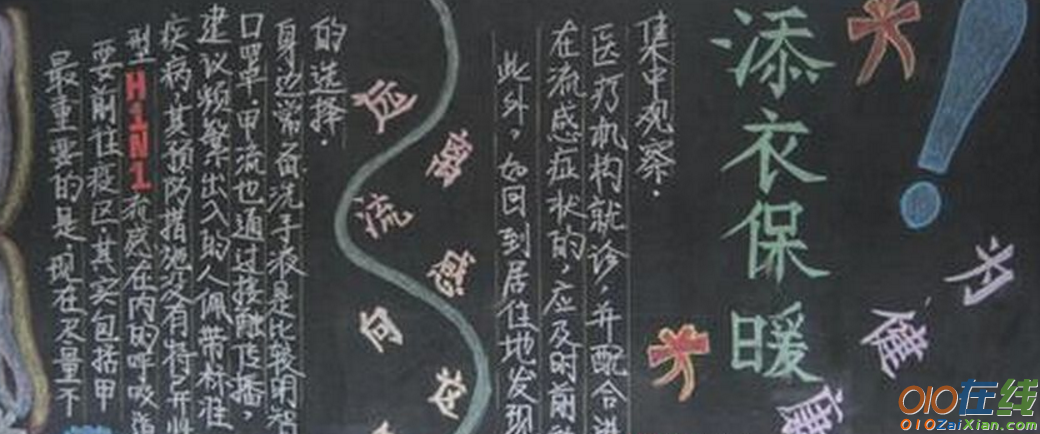 最重要的是,现在尽量不
要前往疫区,其实包括甲
型H1N1流感在内的呼吸道
疾病,其预防措施没有特异
建议频繁出入的人佩带标准
口罩,甲流也通过接触传播,
身边常备洗手液是比较明智
的选择.
远离流感向
此外,如回到居住地发现
在流感症状的,应及时前
医疗机构就诊,并配合进
集中观察.
添衣保暖
!
为健康
010在线
010ZaiXian.com